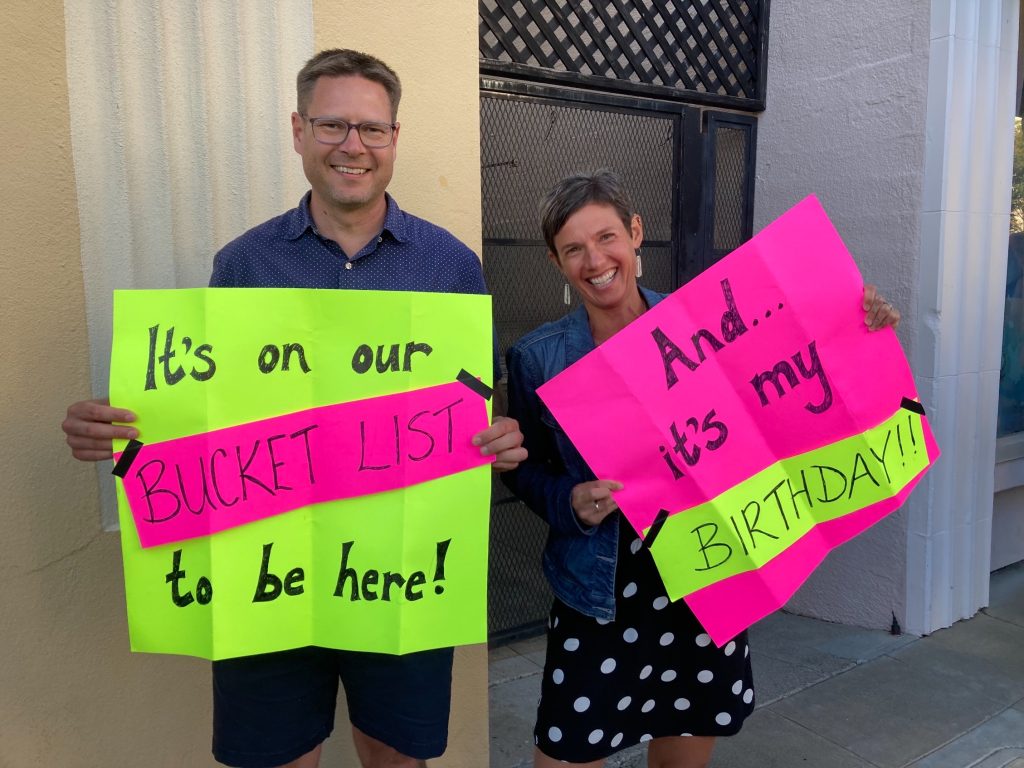 It's on our
BUCKET LIST
to be here!
And...
it's my
BIRTHDAY!!